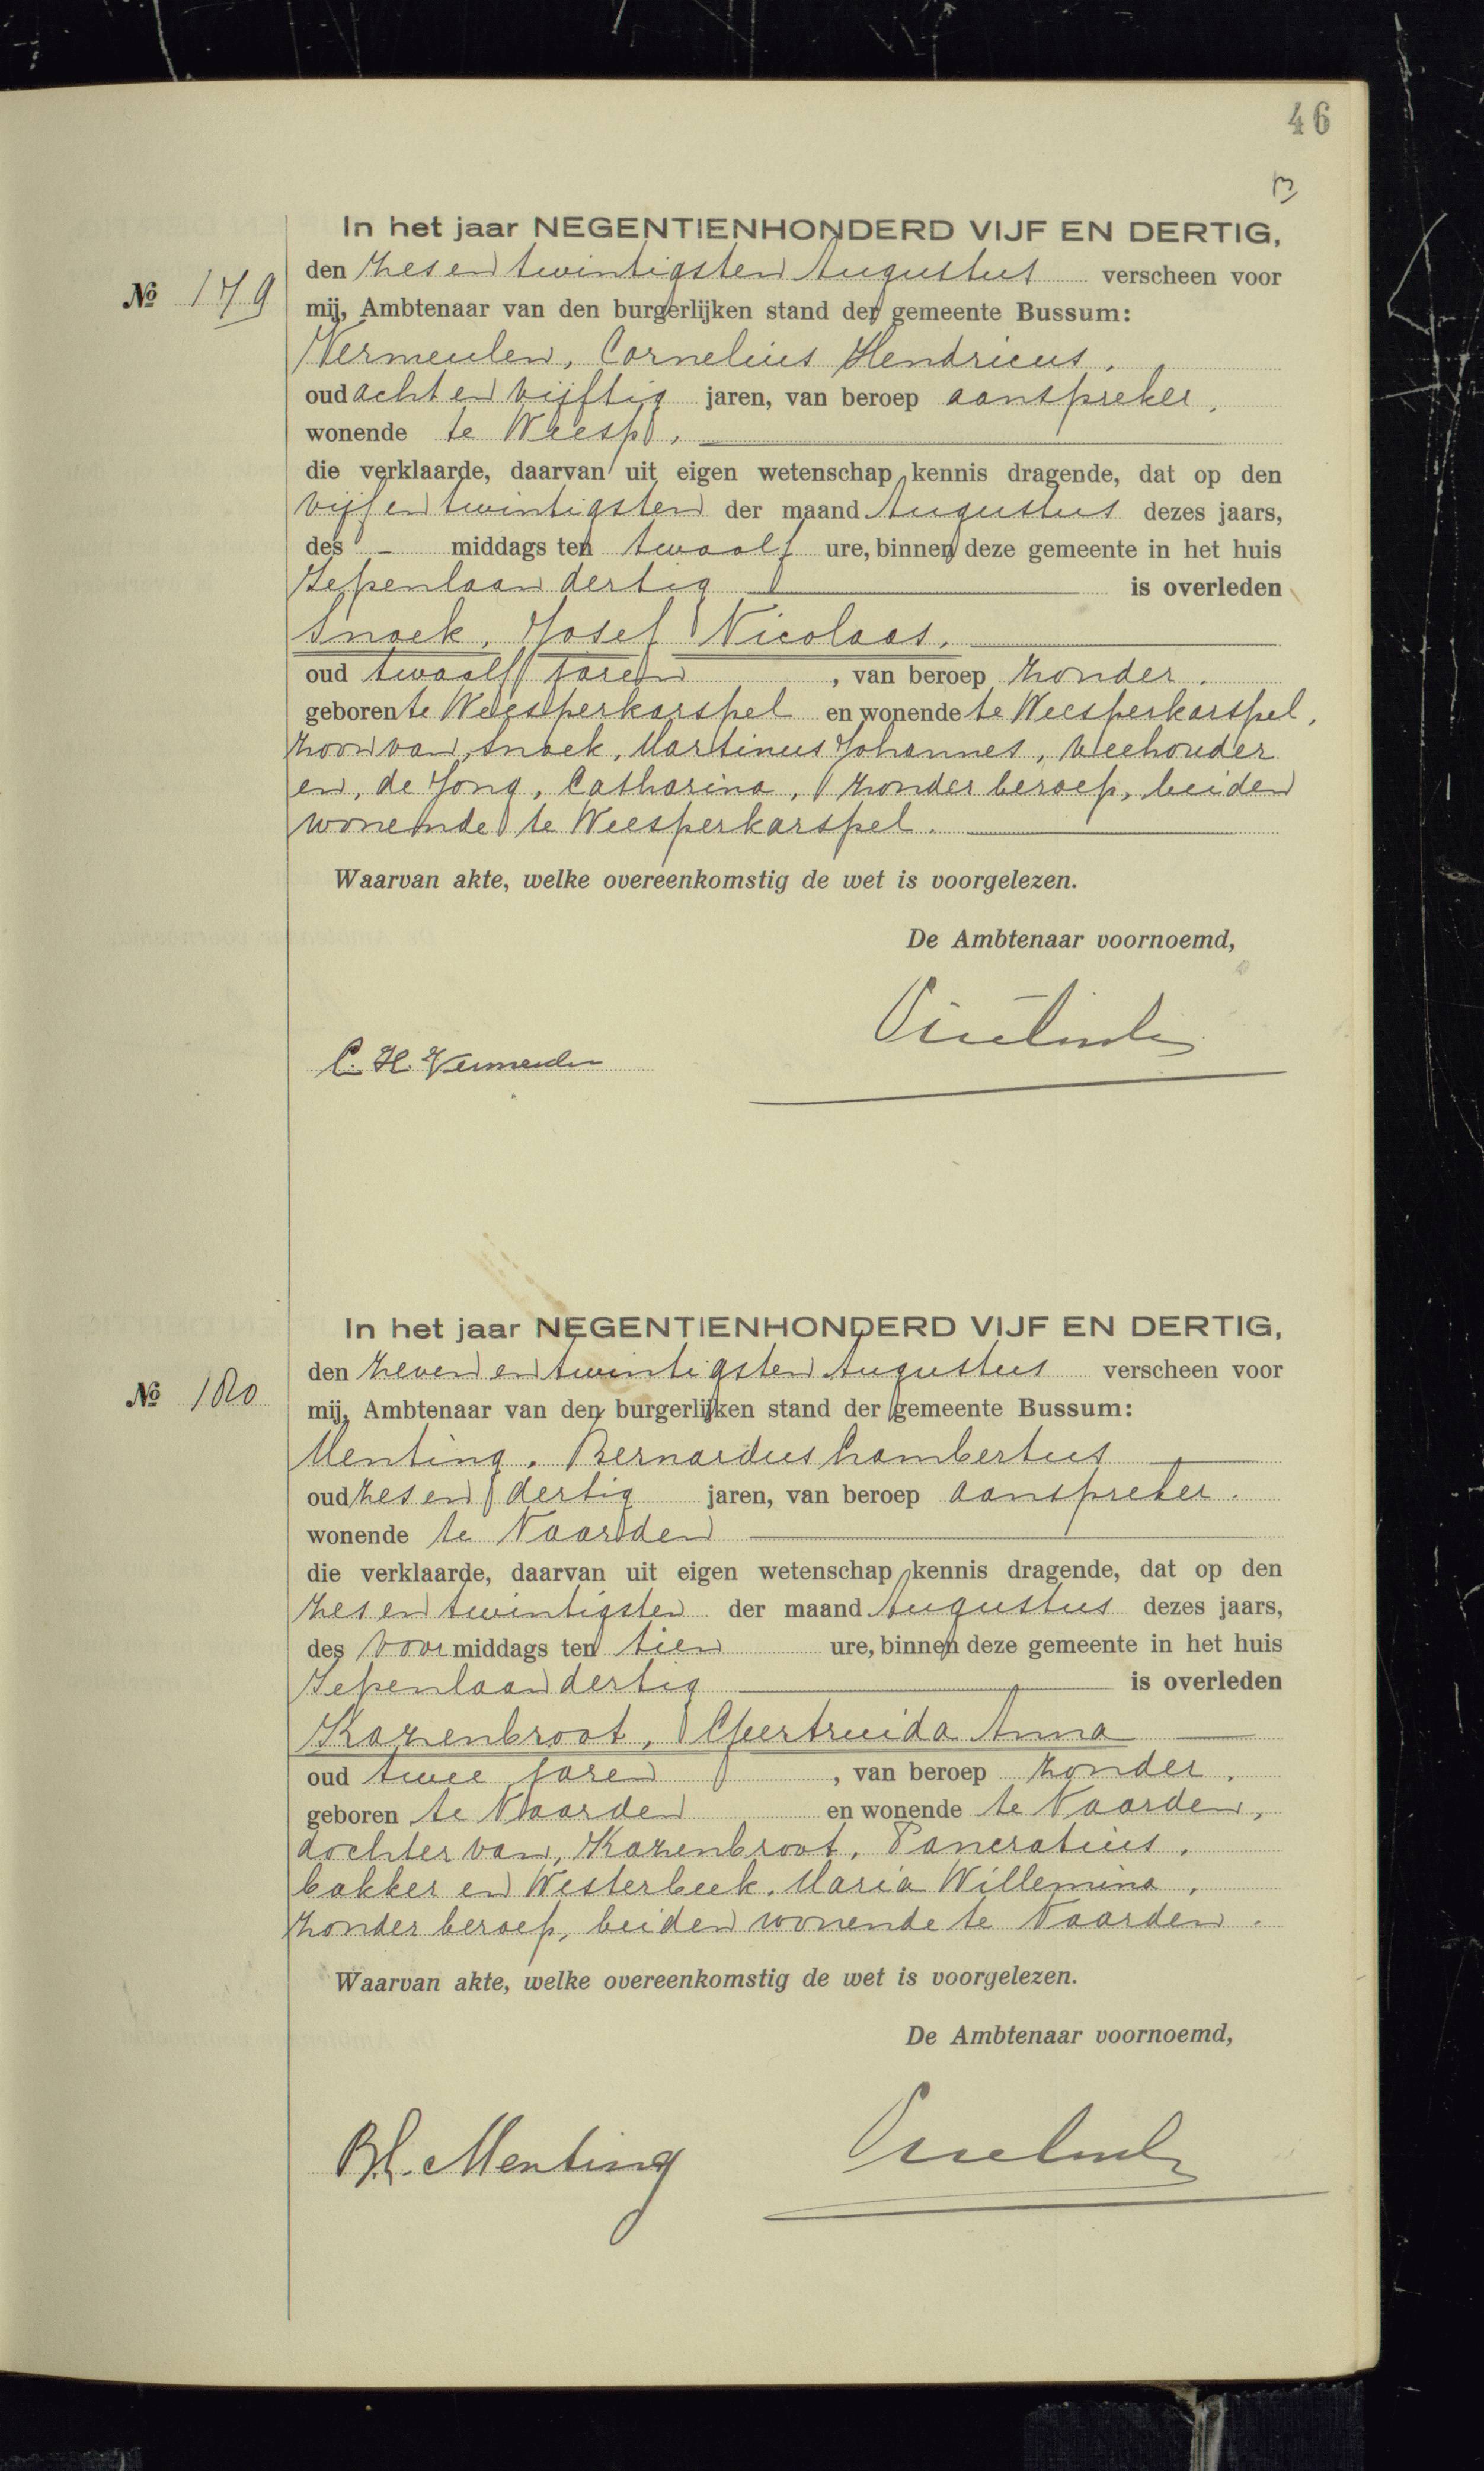 46
13
In het jaar NEGENTIENHONDERD VIJF EN DERTIG,
den zes en twintigsten Augustus verscheen voor
№ 179
mij, Ambtenaar van den burgerlijken stand der gemeente Bussum:
Vermeulen, Cornelius Hendricus,
oud acht en vijftig jaren, van beroep aanspreker,
wonende te Weesp,
die verklaarde, daarvan uit eigen wetenschap kennis dragende, dat op den
vijf en twintigsten der maand Augustus dezes jaars,
des - middags ten twaalf ure, binnen deze gemeente in het huis
Iepenlaan dertig is overleden
Snoek, Josef Nicolaas,
oud twaalf jaren, van beroep zonder.
geboren te Weesperkarspel en wonende te Weesperkarspel,
zoon van, Snoek, Martinus Johannes, veehouder
en, de Jong, Catharina, zonder beroep, beiden
wonende te Weesperkarspel.
Waarvan akte, welke overeenkomstig de wet is voorgelezen.
De Ambtenaar voornoemd,
C. H. Vermeulen
In het jaar NEGENTIENHONDERD VIJF EN DERTIG,
den zeven en twintigsten Augustus verscheen voor
№ 180
mij, Ambtenaar van den burgerlijken stand der gemeente Bussum:
Menting, Bernardus Lambertus
oud zes en dertig jaren, van beroep aanspreker.
wonende te Naarden
die verklaarde, daarvan uit eigen wetenschap kennis dragende, dat op den
zes en twintigsten der maand Augustus dezes jaars,
des voormiddags ten tien ure, binnen deze gemeente in het huis
Iepenlaan dertig is overleden
Kazenbroot, Geertruida Anna
oud twee jaren, van beroep zonder.
geboren te Naarden en wonende te Naarden,
dochter van, Kazenbroot, Pancratius,
bakker en Westerbeek, Maria Willemina,
zonder beroep, beiden wonende te Naarden.
Waarvan akte, welke overeenkomstig de wet is voorgelezen.
De Ambtenaar voornoemd,
B.L. Menting